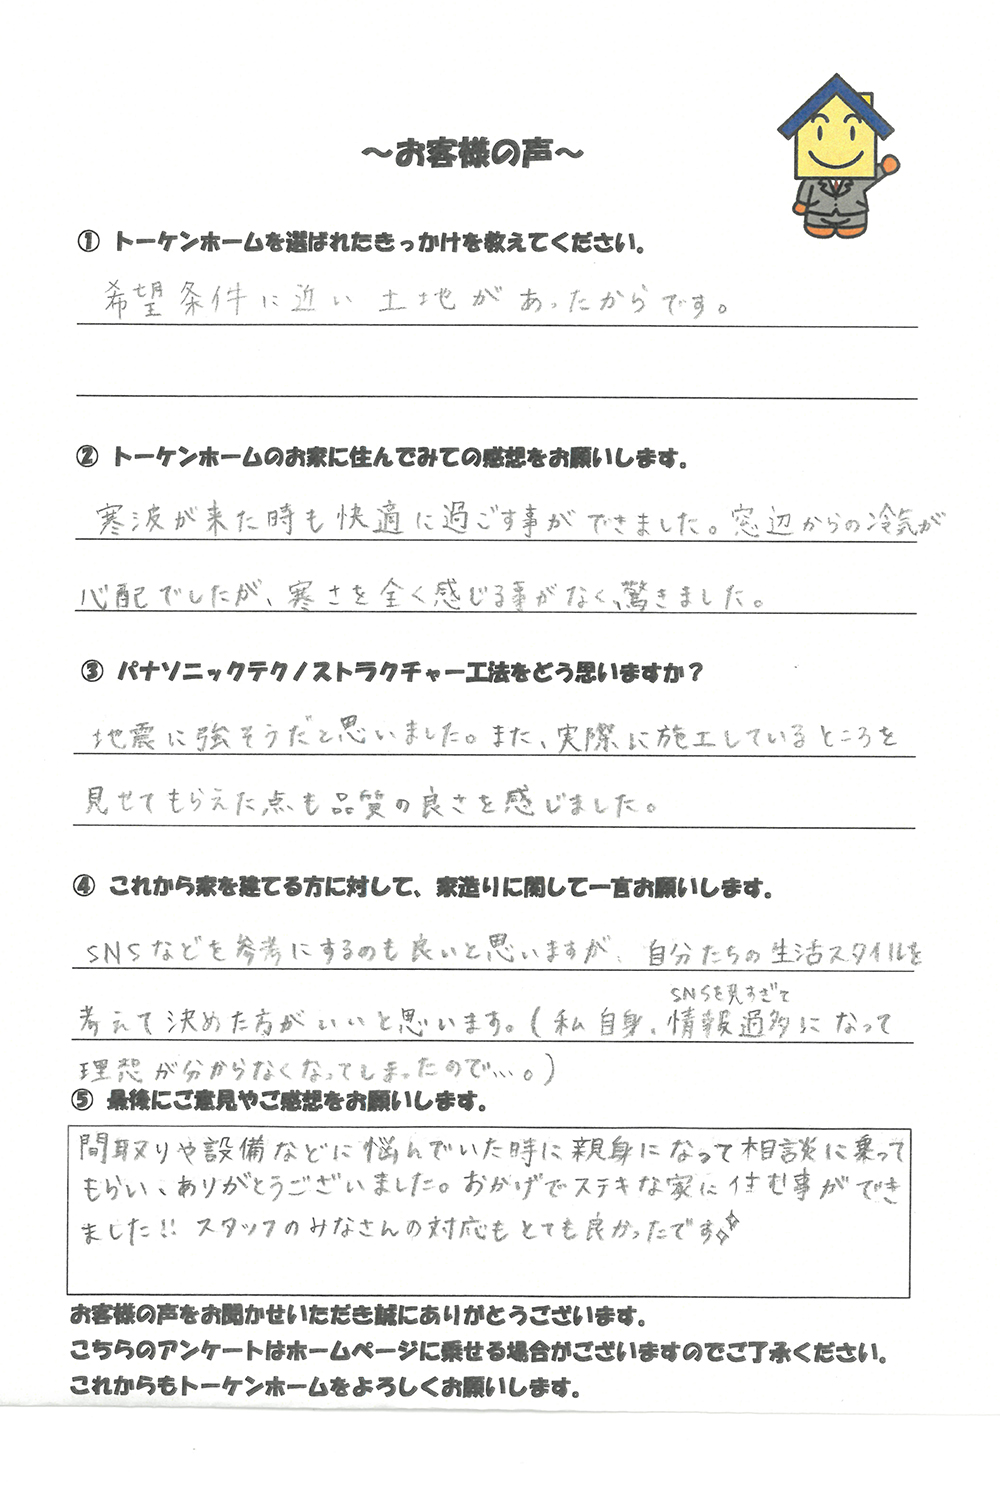 ～お客様の声～
① トーケンホームを選ばれたきっかけを教えてください。
希望条件に近い土地があったからです。
② トーケンホームのお家に住んでみての感想をお願いします。
寒波が来た時も快適に過ごす事ができました。窓辺からの冷気が
心配でしたが、寒さを全く感じる事がなく、驚きました。
③ パナソニックテクノストラクチャー工法をどう思いますか？
地震に強そうだと思いました。また、実際に施工しているところを
見せてもらえた点も品質の良さを感じました。
④ これから家を建てる方に対して、家造りに関して一言お願いします。
SNSなどを参考にするのも良いと思いますが、自分たちの生活スタイルを
SNSを見すぎて
考えて決めた方がいいと思います。(私自身、情報過多になって
理想が分からなくなってしまったので…。)
⑤ 最後にご意見やご感想をお願いします。
間取りや設備などに悩んでいた時に親身になって相談に乗って
もらい、ありがとうございました。おかげでステキな家に住む事ができ
ました!! スタッフのみなさんの対応もとても良かったです
お客様の声をお聞かせいただき誠にありがとうございます。
こちらのアンケートはホームページに乗せる場合がございますのでご了承ください。
これからもトーケンホームをよろしくお願いします。